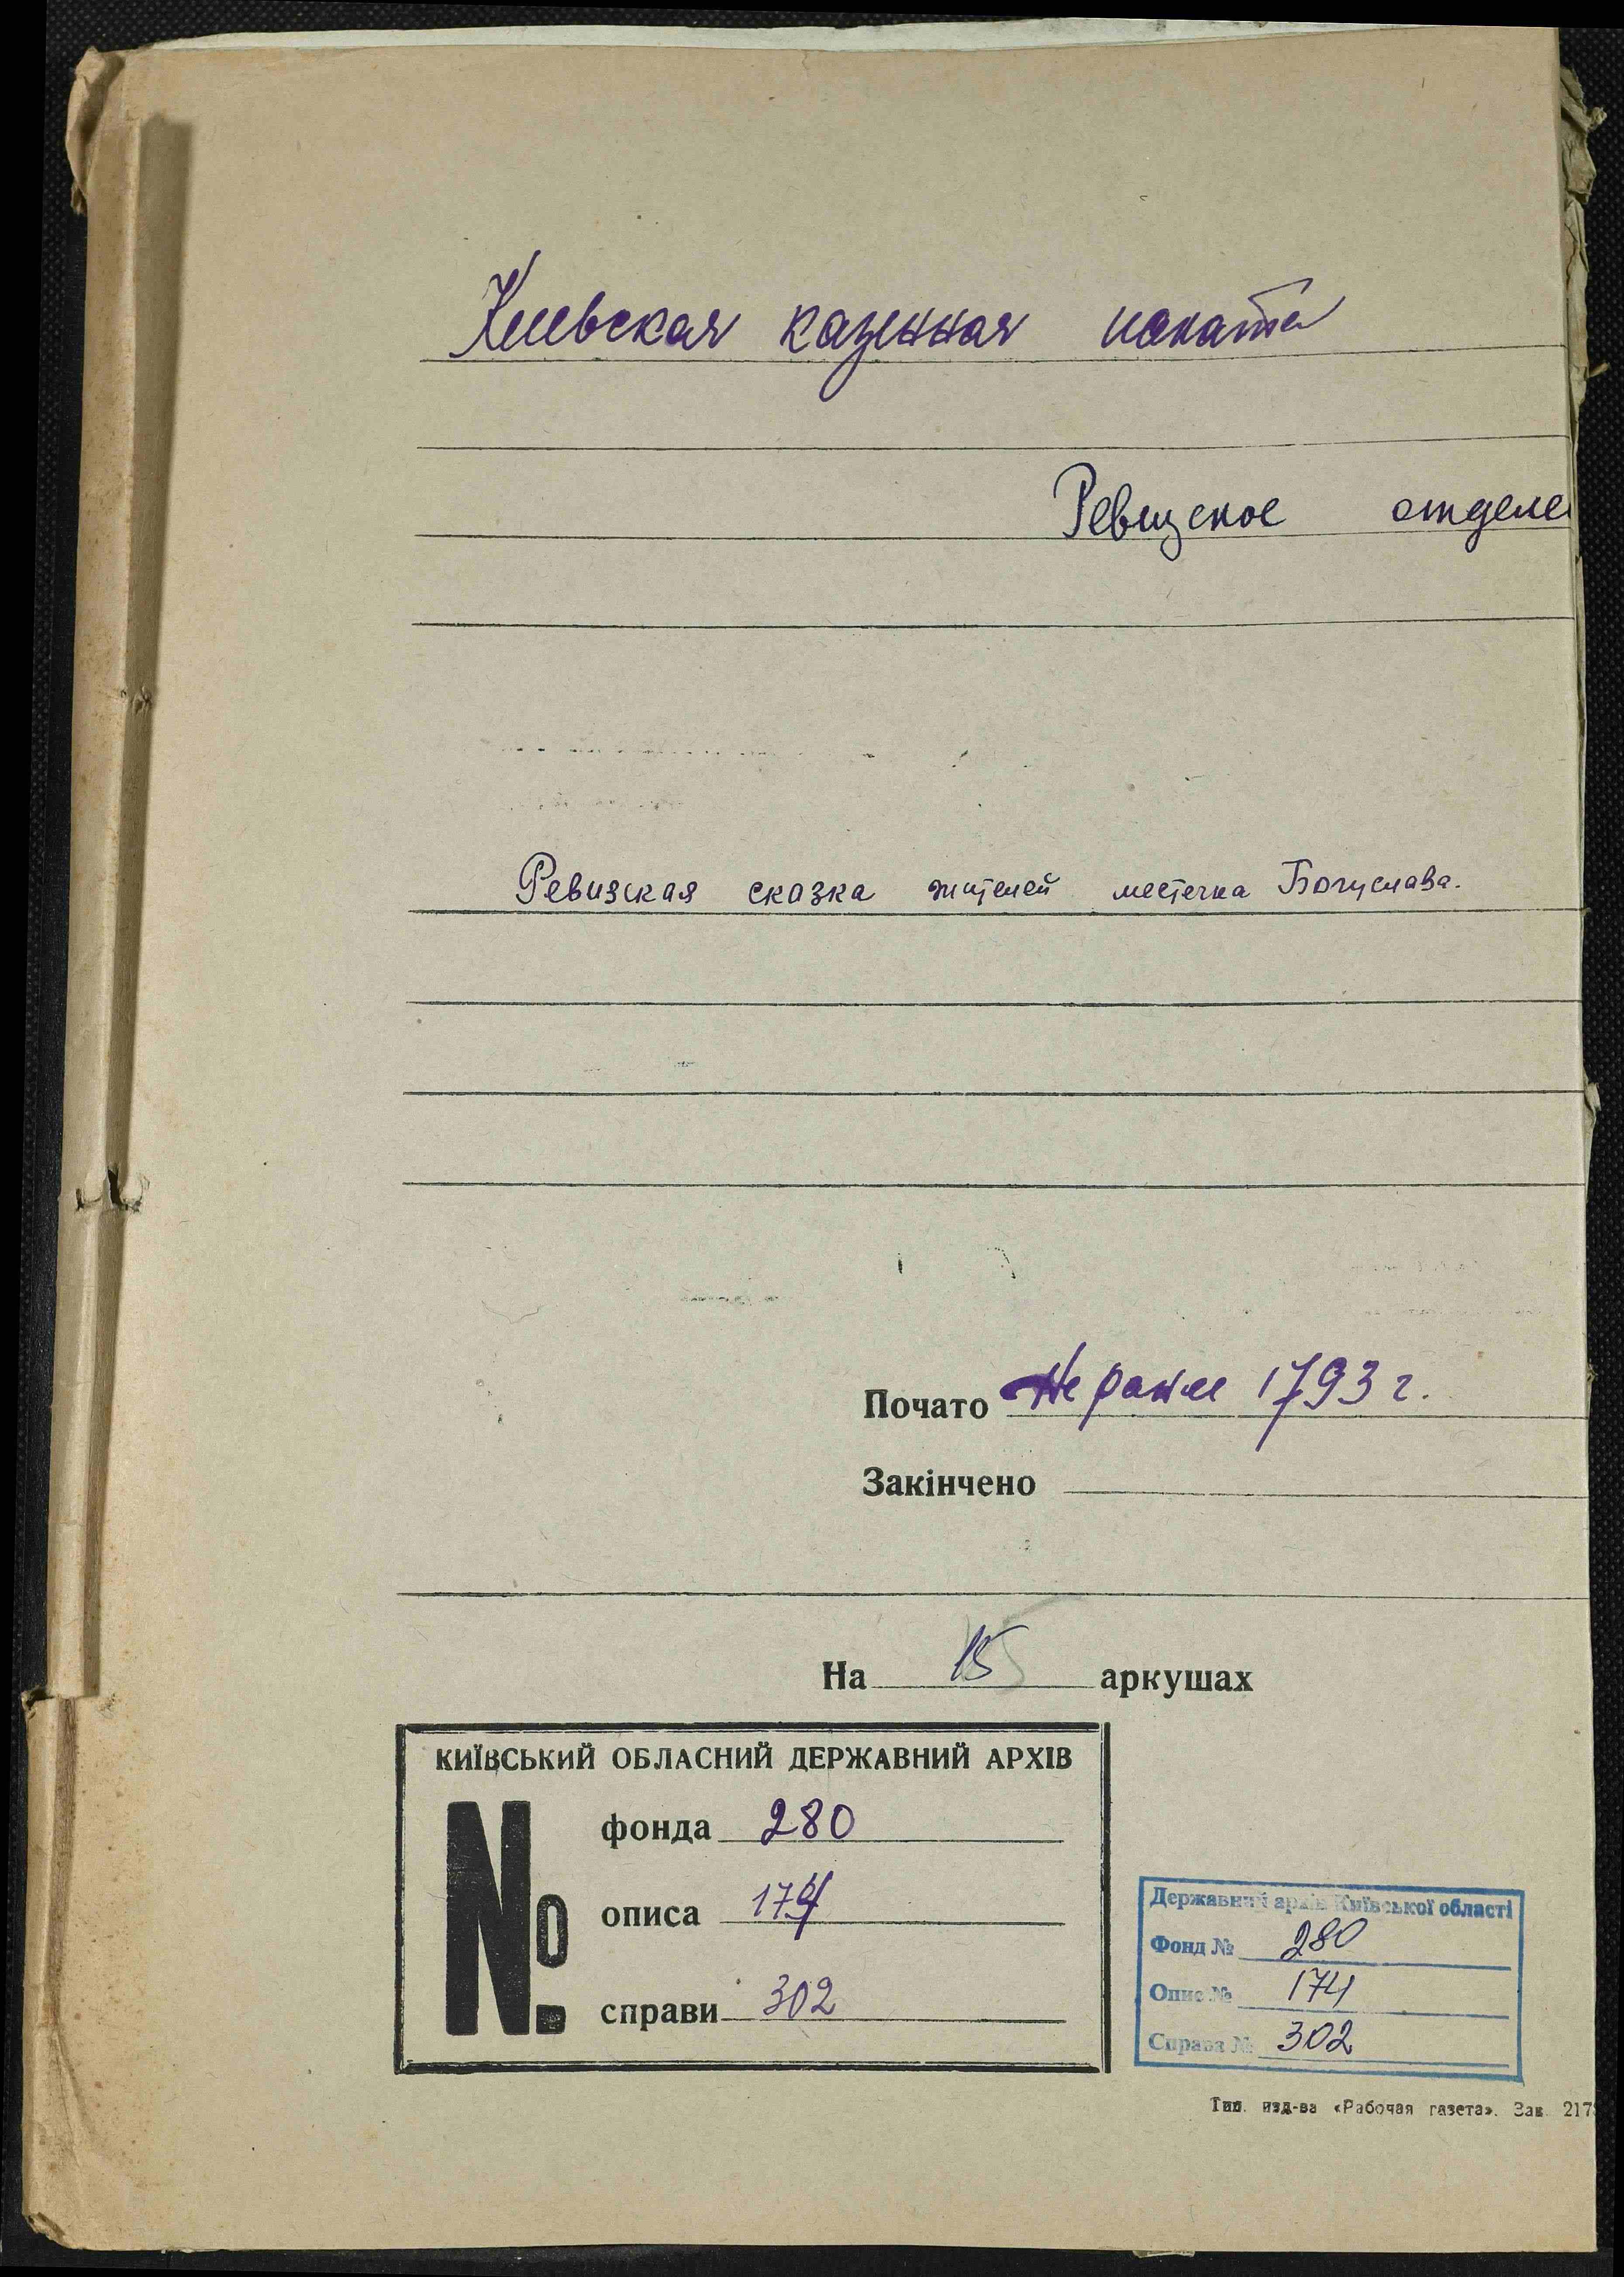 Киевская казенная палата
Ревизское отделе
Ревизская сказка жителей местечка Богуслава.
Почато Не ранее 1793 г.
Закінчено
На 15 аркушах
КИЇВСЬКИЙ ОБЛАСНИЙ ДЕРЖАВНИЙ АРХІВ
№
фонда 280
описа 174
справи 302
Державний архів Київської області
Фонд № 280
Опис № 174
Справа № 302
Тип. изд-ва «Рабочая газета». Зак. 217